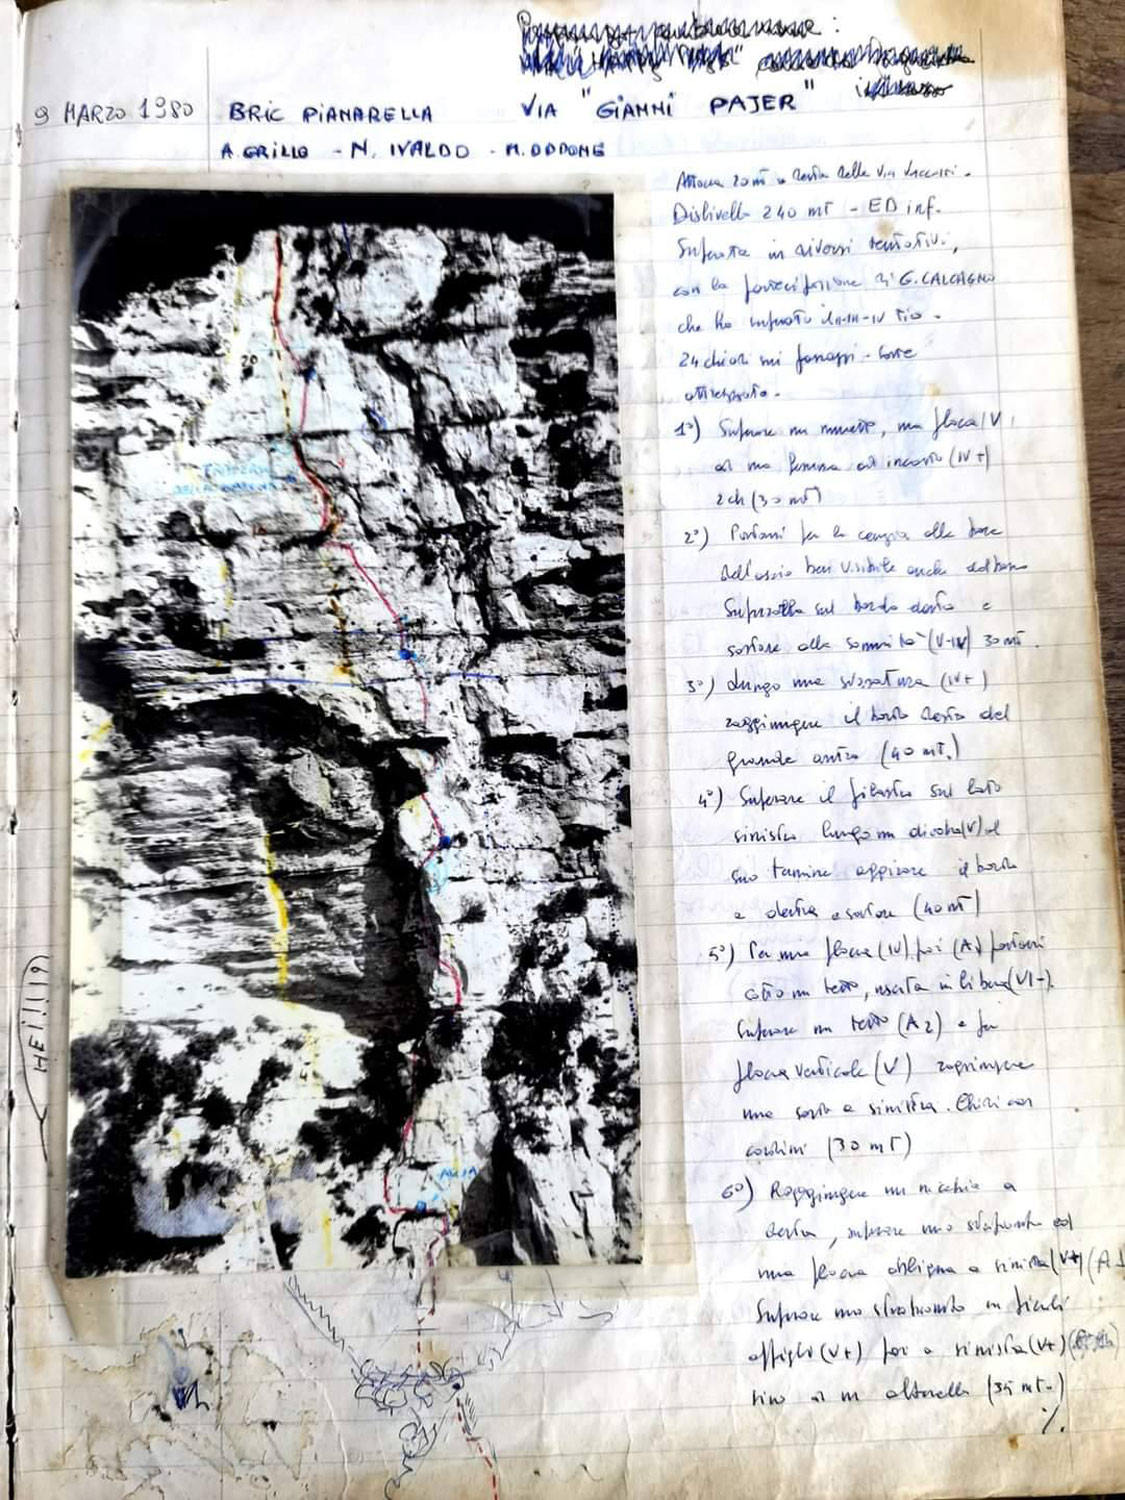 9 MARZO 1980
BRIC PIANARELLA VIA "GIANNI PAJER"
A. GRILLO - N. IVALDO - M. ODDONE
Attacco 20 mt a destra della via
Dislivello 240 mt - ED inf.
Superata in diversi tentativi,
con la partecipazione di G. CALCAGNO
che ha superato II-III-IV tiro.
24 chiodi nei passaggi - soste
attrezzate.
1°) Superare un muretto, una placca IV
ad una lamina ad incastro (IV+)
2 ch (30 mt)
2°) Portarsi per la cengia alla base
ben visibile anche dal basso
Superarla sul bordo destro e
sostare alla sommità (V-IV) 30 mt.
3°) Lungo una svasatura (IV+)
raggiungere il bordo destro del
grande antro (40 mt.)
4°) Superare il pilastro sul lato
sinistro lungo un diedro (V) al
suo termine aggirare il bordo
a destra e sostare (40 mt)
5°) Per una placca (IV) poi (A1) portarsi
sotto un tetto, uscita in libera (VI-).
Superare un tetto (A2) e per
placca verticale (V) raggiungere
una sosta a sinistra. Chiodi con
cordini (30 mt)
6°) Raggiungere una nicchia a
destra, superare uno strapiombo ed
una placca obliqua a sinistra (V+) (A1
Superare uno strapiombo
appigli (V+) poi a sinistra (V+)
sino ad un alberello (35 mt.)
%.
20